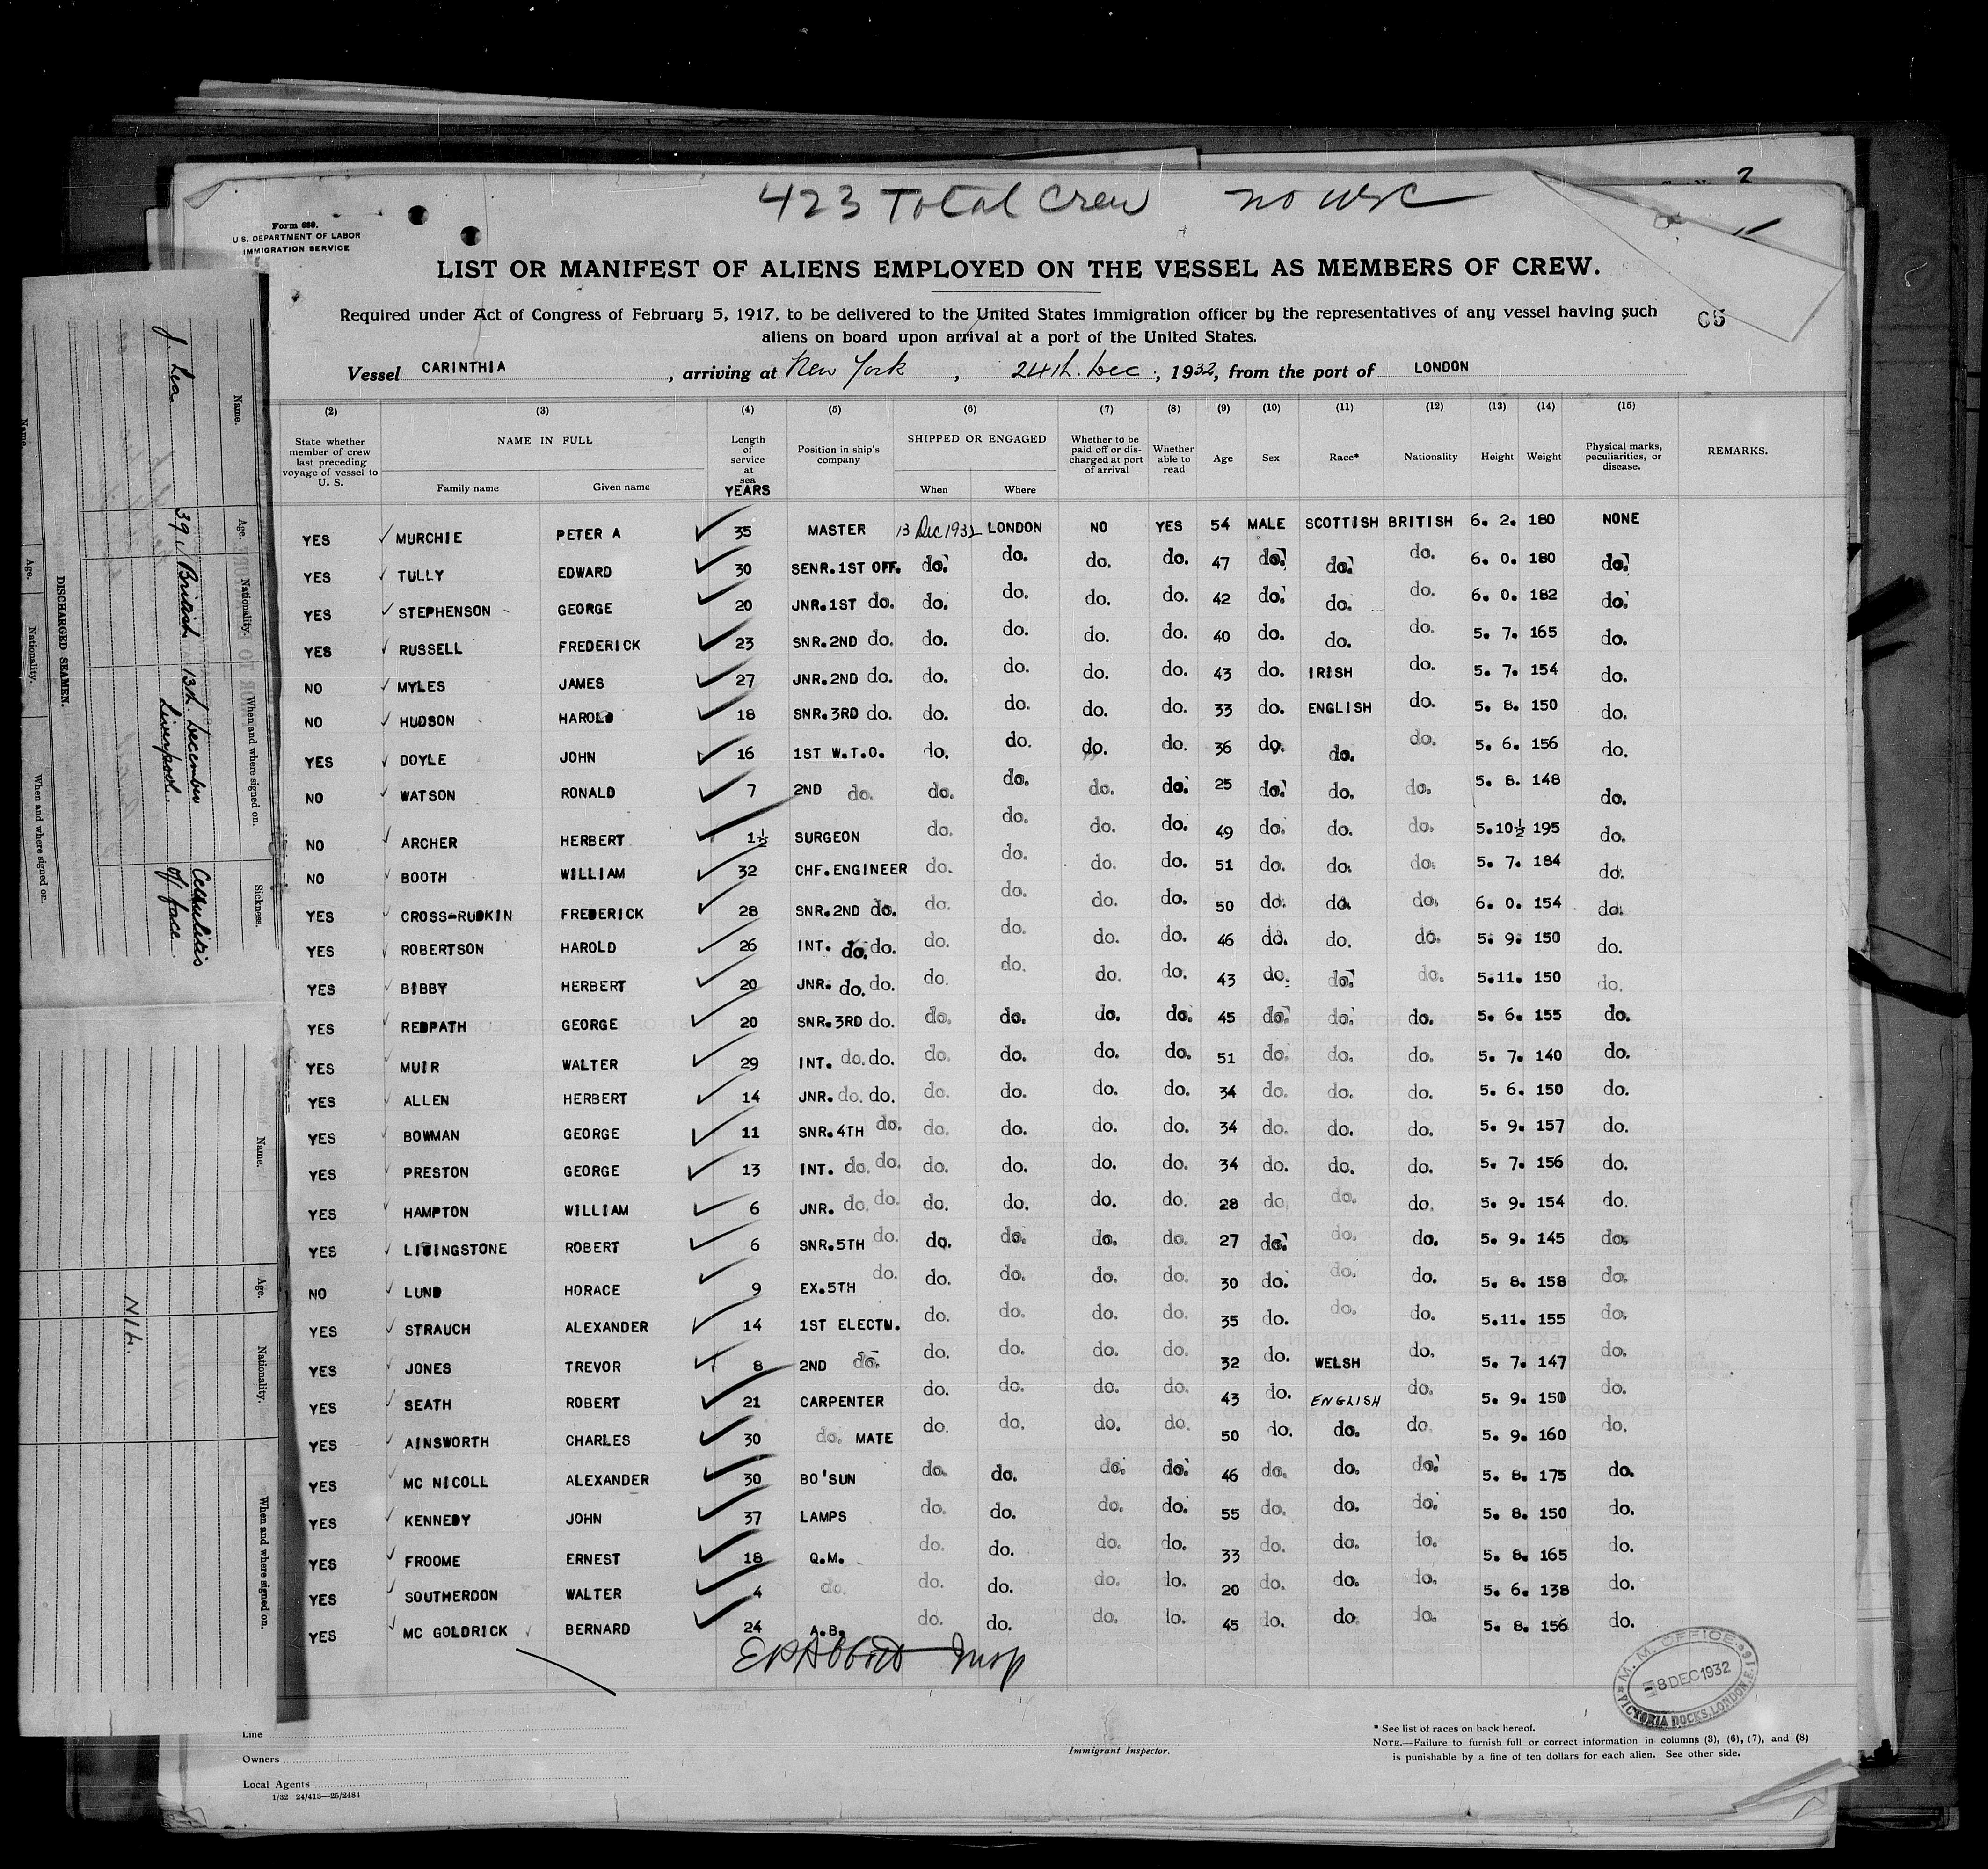 2
423 Total Crew
Form 680.
U.S. DEPARTMENT OF LABOR
IMMIGRATION SERVICE
LIST OR MANIFEST OF ALIENS EMPLOYED ON THE VESSEL AS MEMBERS OF CREW.
Required under Act of Congress of February 5, 1917, to be delivered to the United States immigration officer by the representatives of any vessel having such
aliens on board upon arrival at a port of the United States.
Vessel CARINTHIA, arriving at New York, 24th. Dec, 1932, from the port of LONDON
(2) (3) (4) (5) (6) (7) (8) (9) (10) (11) (12) (13) (14) (15)
State whether member of crew last preceding voyage of vessel to U. S. NAME IN FULL Family name Given name Length of service at sea YEARS Position in ship's company SHIPPED OR ENGAGED When Where Whether to be paid off or discharged at port of arrival Whether able to read Age Sex Race* Nationality Height Weight Physical marks, peculiarities, or disease. REMARKS.
YES MURCHIE PETER A 35 MASTER 13 Dec 1932 LONDON NO YES 54 MALE SCOTTISH BRITISH 6. 2. 180 NONE
YES TULLY EDWARD 30 SENR.1ST OFF. do. do. do. do. 47 do. do. do. 6. 0. 180 do.
YES STEPHENSON GEORGE 20 JNR.1ST do. do. do. do. do. 42 do. do. do. 6. 0. 182 do.
YES RUSSELL FREDERICK 23 SNR.2ND do. do. do. do. do. 40 do. do. do. 5. 7. 165 do.
NO MYLES JAMES 27 JNR.2ND do. do. do. do. do. 43 do. IRISH do. 5. 7. 154 do.
NO HUDSON HAROLD 18 SNR.3RD do. do. do. do. do. 33 do. ENGLISH do. 5. 8. 150 do.
YES DOYLE JOHN 16 1ST W.T.O. do. do. do. do. 36 do. do. do. 5. 6. 156 do.
NO WATSON RONALD 7 2ND do. do. do. do. do. 25 do. do. do. 5. 8. 148 do.
NO ARCHER HERBERT 1½ SURGEON do. do. do. do. 49 do. do. do. 5.10½ 195 do.
NO BOOTH WILLIAM 32 CHF.ENGINEER do. do. do. do. 51 do. do. do. 5. 7. 184 do.
YES CROSS-RUDKIN FREDERICK 28 SNR.2ND do. do. do. do. do. 50 do. do. do. 6. 0. 154 do.
YES ROBERTSON HAROLD 26 INT. do. do. do. do. do. do. 46 do. do. do. 5. 9. 150 do.
YES BIBBY HERBERT 20 JNR. do. do. do. do. do. do. 43 do. do. do. 5.11. 150 do.
YES REDPATH GEORGE 20 SNR.3RD do. do. do. do. do. 45 do. do. do. 5. 6. 155 do.
YES MUIR WALTER 29 INT. do. do. do. do. do. do. 51 do. do. do. 5. 7. 140 do.
YES ALLEN HERBERT 14 JNR. do. do. do. do. do. do. 34 do. do. do. 5. 6. 150 do.
YES BOWMAN GEORGE 11 SNR.4TH do. do. do. do. do. 34 do. do. do. 5. 9. 157 do.
YES PRESTON GEORGE 13 INT. do. do. do. do. do. do. 34 do. do. do. 5. 7. 156 do.
YES HAMPTON WILLIAM 6 JNR. do. do. do. do. do. do. 28 do. do. do. 5. 9. 154 do.
YES LIVINGSTONE ROBERT 6 SNR.5TH do. do. do. do. do. 27 do. do. do. 5. 9. 145 do.
NO LUND HORACE 9 EX.5TH do. do. do. do. do. 30 do. do. do. 5. 8. 158 do.
YES STRAUCH ALEXANDER 14 1ST ELECTN. do. do. do. do. 35 do. do. do. 5.11. 155 do.
YES JONES TREVOR 8 2ND do. do. do. do. do. 32 do. WELSH do. 5. 7. 147 do.
YES SEATH ROBERT 21 CARPENTER do. do. do. do. 43 do. ENGLISH do. 5. 9. 150 do.
YES AINSWORTH CHARLES 30 do. MATE do. do. do. do. 50 do. do. do. 5. 9. 160 do.
YES MC NICOLL ALEXANDER 30 BO'SUN do. do. do. do. 46 do. do. do. 5. 8. 175 do.
YES KENNEDY JOHN 37 LAMPS do. do. do. do. 55 do. do. do. 5. 8. 150 do.
YES FROOME ERNEST 18 Q.M. do. do. do. do. 33 do. do. do. 5. 8. 165 do.
YES SOUTHERDON WALTER 4 do. do. do. do. do. 20 do. do. do. 5. 6. 138 do.
YES MC GOLDRICK BERNARD 24 A.B. do. do. do. do. 45 do. do. do. 5. 8. 156 do.
Insp
M. M. OFFICE
8 DEC 1932
VICTORIA DOCKS, LONDON, E.16
Line
Owners
Local Agents
1/32 24/413—25/2484
Immigrant Inspector.
* See list of races on back hereof.
NOTE.—Failure to furnish full or correct information in columns (3), (6), (7), and (8)
is punishable by a fine of ten dollars for each alien. See other side.
Name. Age. Nationality. When and where signed on. Sickness.
J. Lea 39 British 13th. December Liverpool. Cellulitis of face.
DISCHARGED SEAMEN.
Name. Age. Nationality. When and where signed on.
Name. Age. Nationality. When and where signed on.
NIL.